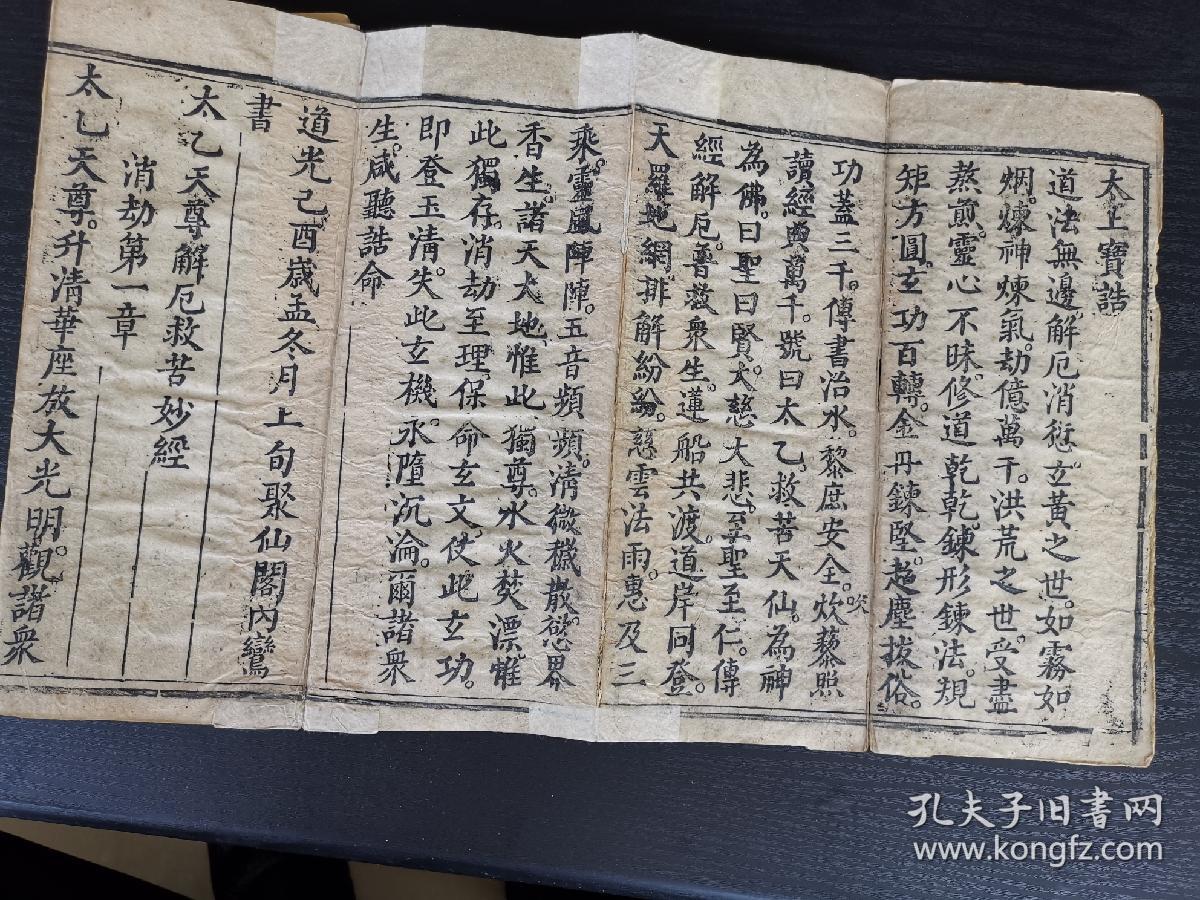 太上寶誥
道法無邊。解厄消愆。玄黃之世。如霧如
烟。煉神煉氣。劫億萬千。洪荒之世。受盡
熬煎。靈心不昧。修道乾乾。鍊形鍊法。規
矩方圓。玄功百轉。金丹鍊堅。超塵拔俗。
功蓋三千。傳書治水。黎庶安全。炊藜照
吹
讀。經典萬千。號曰太乙。救苦天仙。為神
為佛。曰聖曰賢。大慈大悲。至聖至仁。傳
經解厄。普救衆生。蓮船共渡。道岸同登。
天羅地網。排解紛紛。慈雲法雨。惠及三
乘。靈風陣陣。五音頻頻。清微穢散。慾界
香生。諸天大地。惟此獨尊。水火焚漂。惟
此獨存。消劫至理。保命玄文。仗此玄功。
即登玉清。失此玄機。永墮沉淪。爾諸衆
生。咸聽誥命
道光己酉歲孟冬月上旬聚仙閣內鸞
書
太乙天尊解厄救苦妙經
消劫第一章
太乙天尊。升清華座。放大光明。觀諸衆
孔夫子旧书网
www.kongfz.com